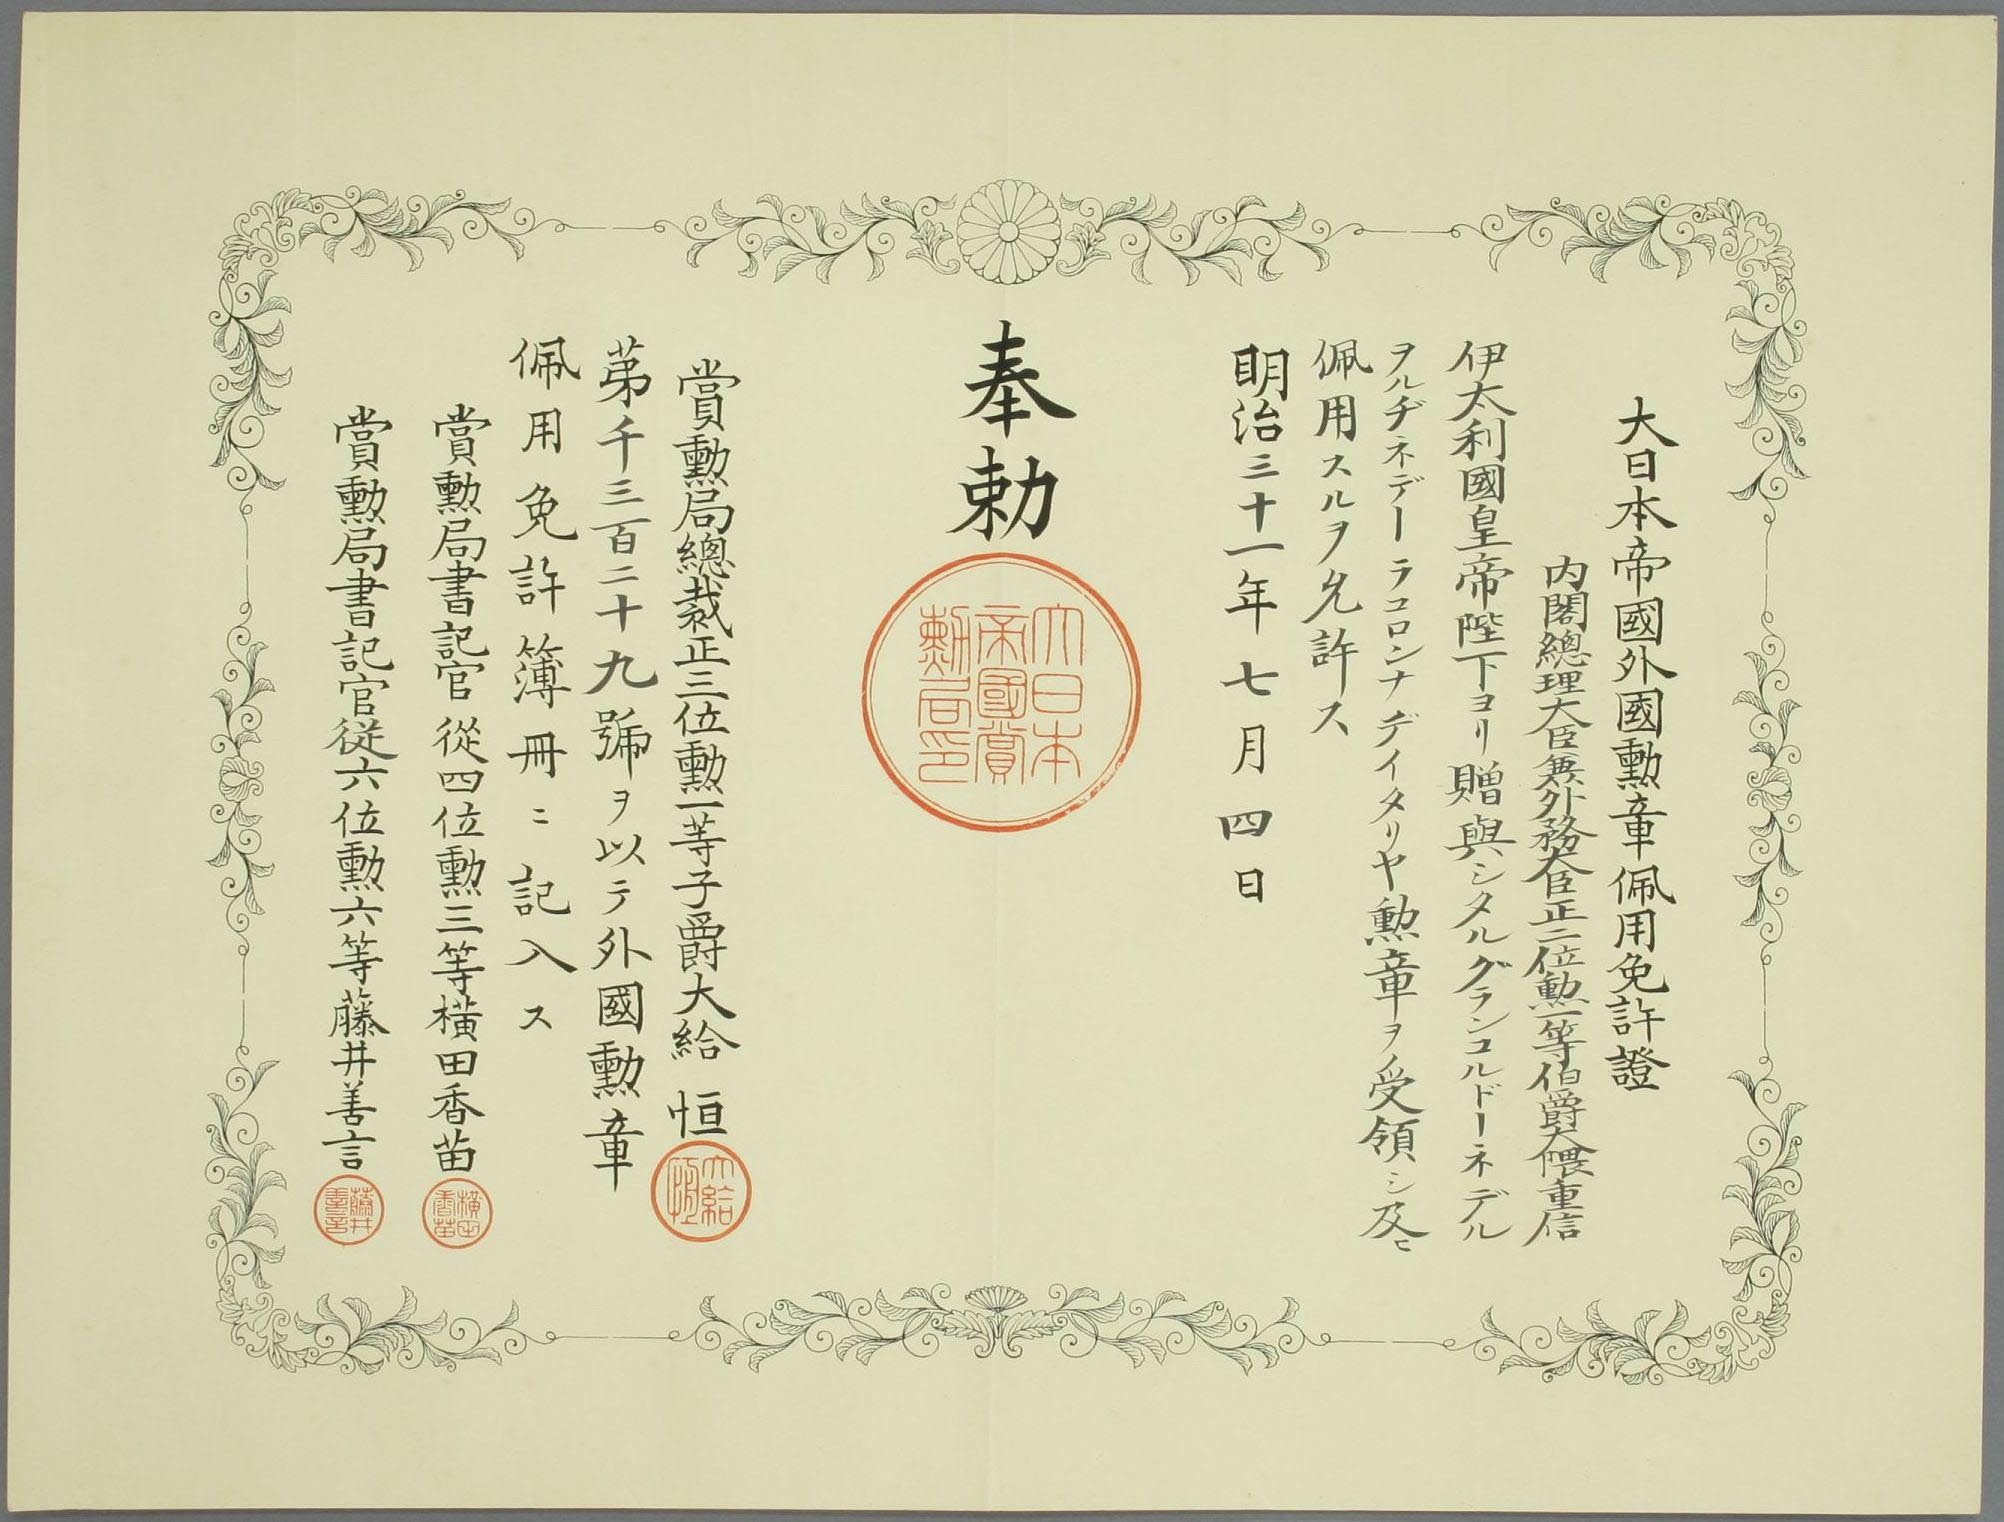 大日本帝國外國勳章佩用免許證
内閣總理大臣兼外務大臣正二位勲一等伯爵大隈重信
伊太利國皇帝陛下ヨリ贈與シタルグランコルドーネデル
ヲルヂネデーラコロンナデイタリヤ勲章ヲ受領シ及ヒ
佩用スルヲ允許ス
明治三十一年七月四日
奉勅
大日本
帝國賞
勲局印
賞勲局總裁正三位勲一等子爵大給恒
大給
恒
第千三百二十九號ヲ以テ外國勲章
佩用免許簿冊ニ記入ス
賞勲局書記官従四位勲三等横田香苗
横田
香苗
賞勲局書記官従六位勲六等藤井善言
藤井
善言